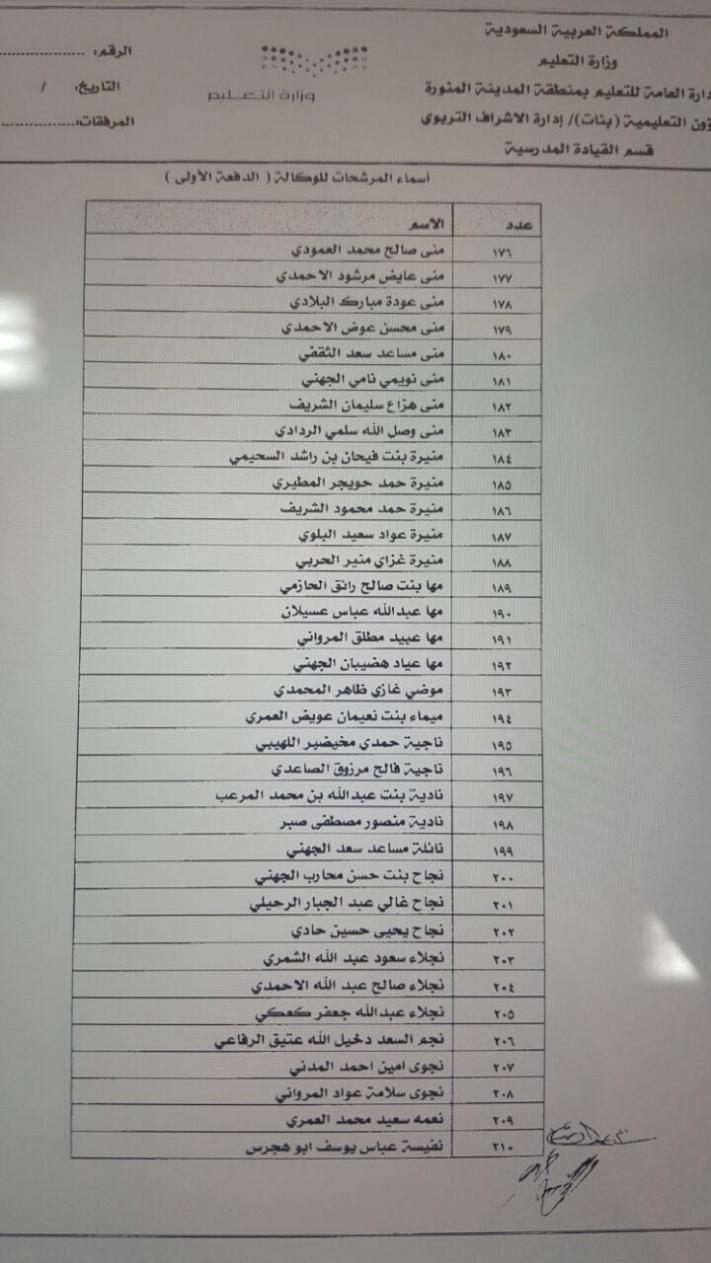 المملكة العربية السعودية
وزارة التعليم
دارة العامة للتعليم بمنطقة المدينة المنورة
ؤون التعليمية (بنات)/ إدارة الاشراف التربوي
قسم القيادة المدرسية
وزارة التعليم
الرقم: ....................
التاريخ: /
المرفقات:....................
أسماء المرشحات للوكالة ( الدفعة الأولى )
عدد الاسم
١٧٦ منى صالح محمد العمودي
١٧٧ منى عايض مرشود الاحمدي
١٧٨ منى عودة مبارك البلادي
١٧٩ منى محسن عوض الاحمدي
١٨٠ منى مساعد سعد الثقفي
١٨١ منى نويمي نامي الجهني
١٨٢ منى هزاع سليمان الشريف
١٨٣ منى وصل الله سلمي الردادي
١٨٤ منيرة بنت فيحان بن راشد السحيمي
١٨٥ منيرة حمد حويجر المطيري
١٨٦ منيرة حمد محمود الشريف
١٨٧ منيرة عواد سعيد البلوي
١٨٨ منيرة غزاي منير الحربي
١٨٩ مها بنت صالح رائق الحازمي
١٩٠ مها عبدالله عباس عسيلان
١٩١ مها عبيد مطلق المرواني
١٩٢ مها عياد هضيبان الجهني
١٩٣ موضي غازي ظاهر المحمدي
١٩٤ ميماء بنت نعيمان عويض العمري
١٩٥ ناجية حمدي مخيضير اللهيبي
١٩٦ ناجية فالح مرزوق الصاعدي
١٩٧ نادية بنت عبدالله بن محمد المرعب
١٩٨ نادية منصور مصطفى صبر
١٩٩ نائلة مساعد سعد الجهني
٢٠٠ نجاح بنت حسن محارب الجهني
٢٠١ نجاح غالي عبد الجبار الرحيلي
٢٠٢ نجاح يحيى حسين حادي
٢٠٣ نجلاء سعود عبد الله الشمري
٢٠٤ نجلاء صالح عبد الله الاحمدي
٢٠٥ نجلاء عبدالله جعفر كعكي
٢٠٦ نجم السعد دخيل الله عتيق الرفاعي
٢٠٧ نجوى امين احمد المدني
٢٠٨ نجوى سلامة عواد المرواني
٢٠٩ نعمه سعيد محمد العمري
٢١٠ نفيسة عباس يوسف ابو هجرس